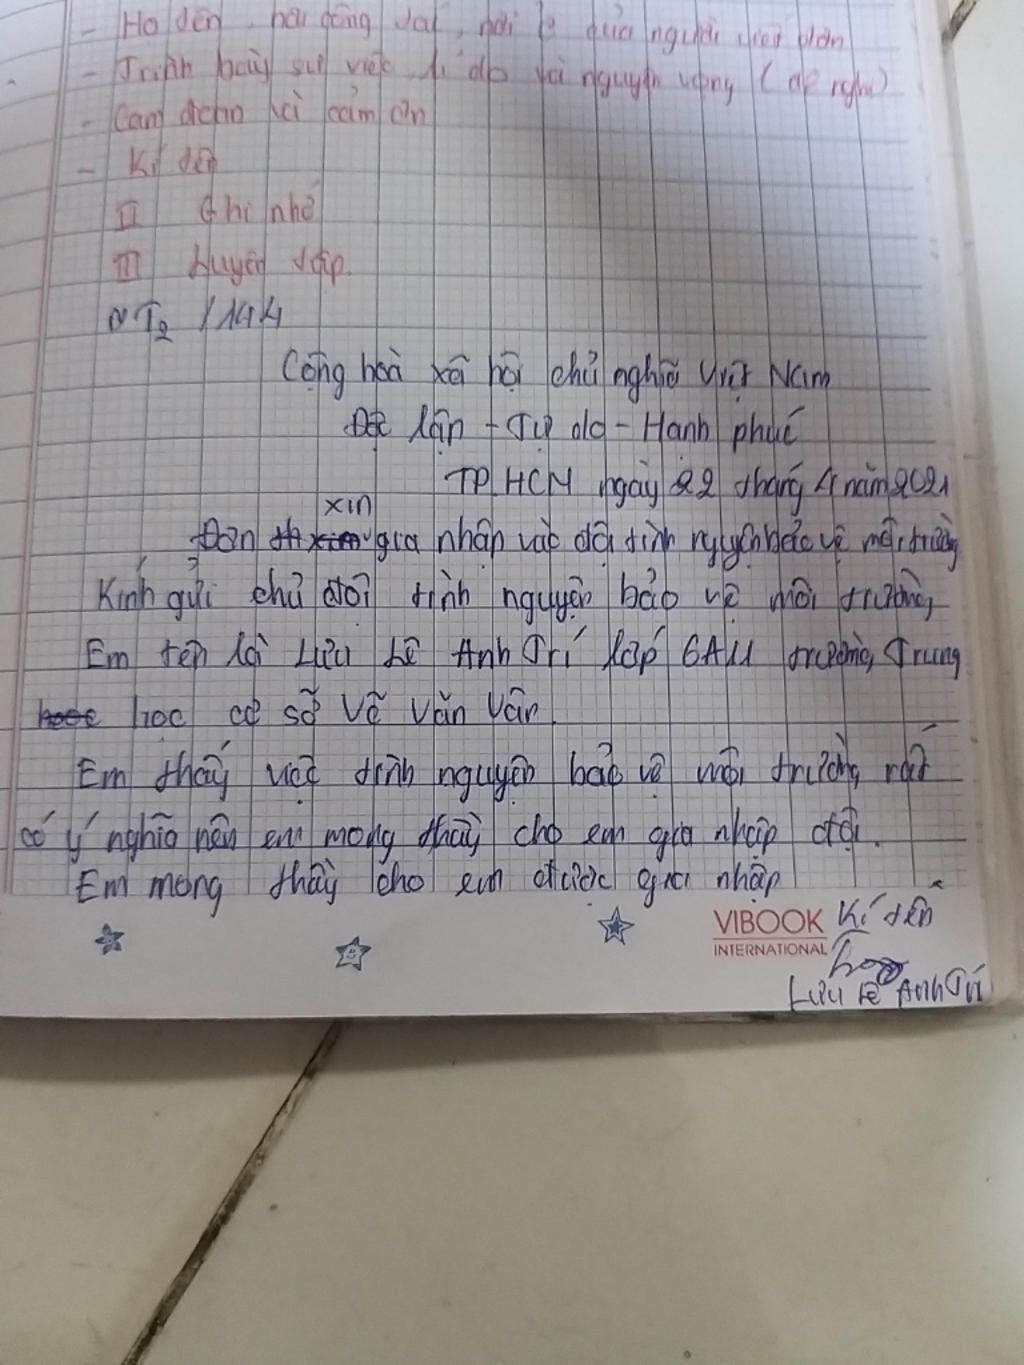 - Họ tên, nơi công tác, nơi ở của người viết đơn
- Trình bày sự việc lí do và nguyện vọng (đề nghị)
- Cam đoan và cảm ơn
- Kí tên
II Ghi nhớ
III Luyện tập.
T2 /144
Cộng hoà xã hội chủ nghĩa Việt Nam
Độc lập - Tự do - Hạnh phúc
TP HCM ngày 22 tháng 4 năm 2021
xin
Đơn gia nhập vào đội tình nguyện bảo vệ môi trường
Kính gửi chủ đội tình nguyện bảo vệ môi trường
Em tên là Lưu Lê Anh Trí lớp 6A11 trường Trung
học cơ sở Võ Văn Vân
Em thấy việc tình nguyện bảo vệ môi trường rất
có ý nghĩa nên em mong thầy cho em gia nhập đội.
Em mong thầy cho em được gia nhập
VIBOOK Kí tên
INTERNATIONAL
Lưu Lê Anh Trí